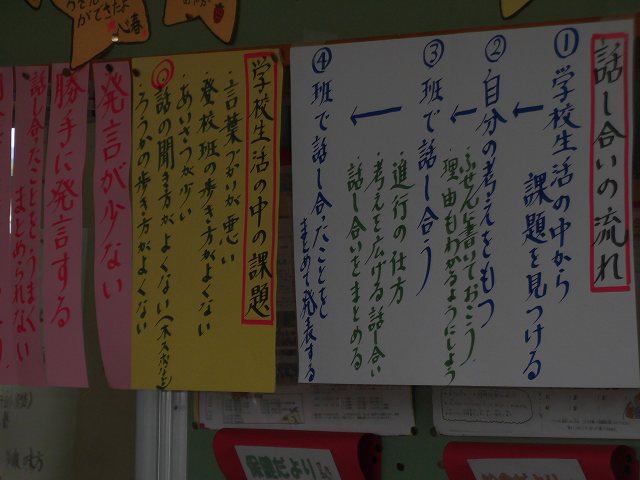 話し合いの流れ
①学校生活の中から
課題を見つける
②自分の考えをもつ
ふせんに書いておこう
理由もわかるようにしよう
③班で話し合う
進行の仕方
考えを広げる話し合い
話し合いをまとめる
④班で話し合ったことを
まとめて発表する
学校生活の中の課題
・言葉づかいが悪い
・登校班の歩き方がよくない
・あいさつが少ない
・話の聞き方がよくない
・ろうかの歩き方がよくない
発言が少ない
勝手に発言する
話し合ったことをうまく
まとめられない
ができたよ
心春
保健だより